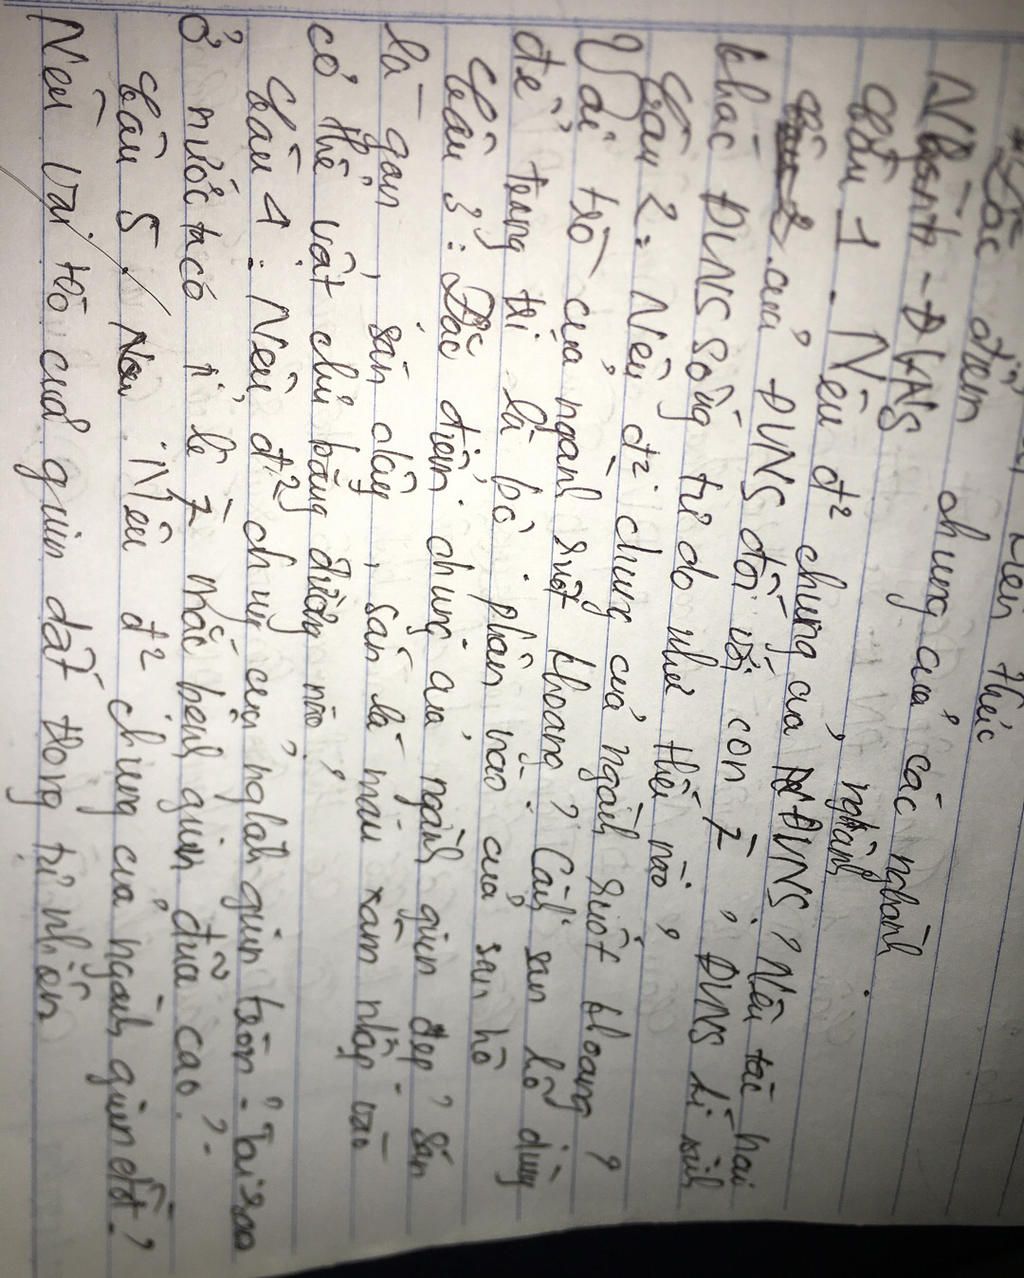 Đặc điểm chung của các nghành
Ngành - ĐVNS
Câu 1 - Nêu đ² chung của nghành
của ĐVNS đối với con ; ĐVNS kí sinh
chung của ĐVNS? Nêu tác hại
khác ĐVNS Sống tự do như thế nào?
Câu 2: Nêu đ² chung của ngành ruột khoang?
Vai trò của ngành ruột khoang? Cành san hô dùng
để trang trí là bộ phân nào của san hô
Câu 3: Đặc điểm chung của ngành giun dẹp? sán
lá gan, sán dây, sán lá máu xâm nhập vào
cơ thể vật chủ bằng đường nào?
Câu 4: Nêu đ² chung của nghành giun tròn - Tại sao
Ở nước ta có tỉ lệ mắc bệnh giun đũa cao?
Câu 5. Nêu đ² chung của ngành giun đốt?
Nêu vai trò của giun đất trong tự nhiên